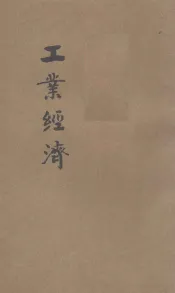 工業經濟